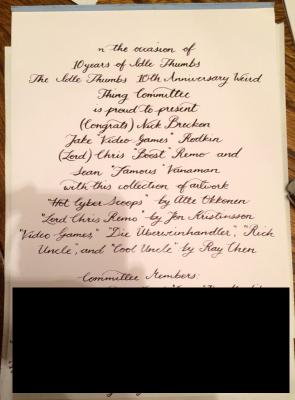 n the occasion of
10 years of Idle Thumbs
The Idle Thumbs 10th Anniversary Weird
Thing Committee
is proud to present
(Congrats) Nick Breckon
Jake "Video Games" Rodkin
(Lord) Chris "Boost" Remo and
Sean "Famous" Vanaman
with this collection of artwork
"Hot Cyber Scoops" by Atte Ukkonen
"Lord Chris Remo" by Jón Kristinsson
"Video Games," "Die Überweinhandler", "Rich
Uncle," and "Cool Uncle" by Ray Chen
Committee Members: